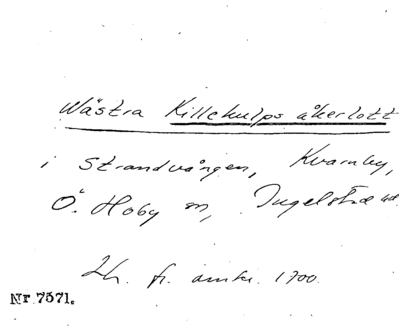 Wästra Killehulps åkerlott
i Strandvången, Kvarnby,
Ö. Hoby sn, Ingelstad hd.
fr. omkr. 1700.
Nr 7571.